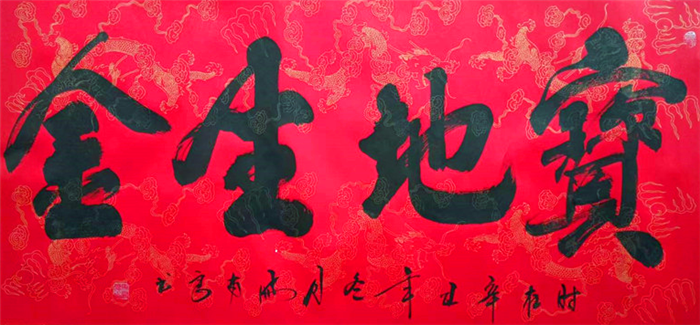 寶地生金
时在辛丑年冬月书